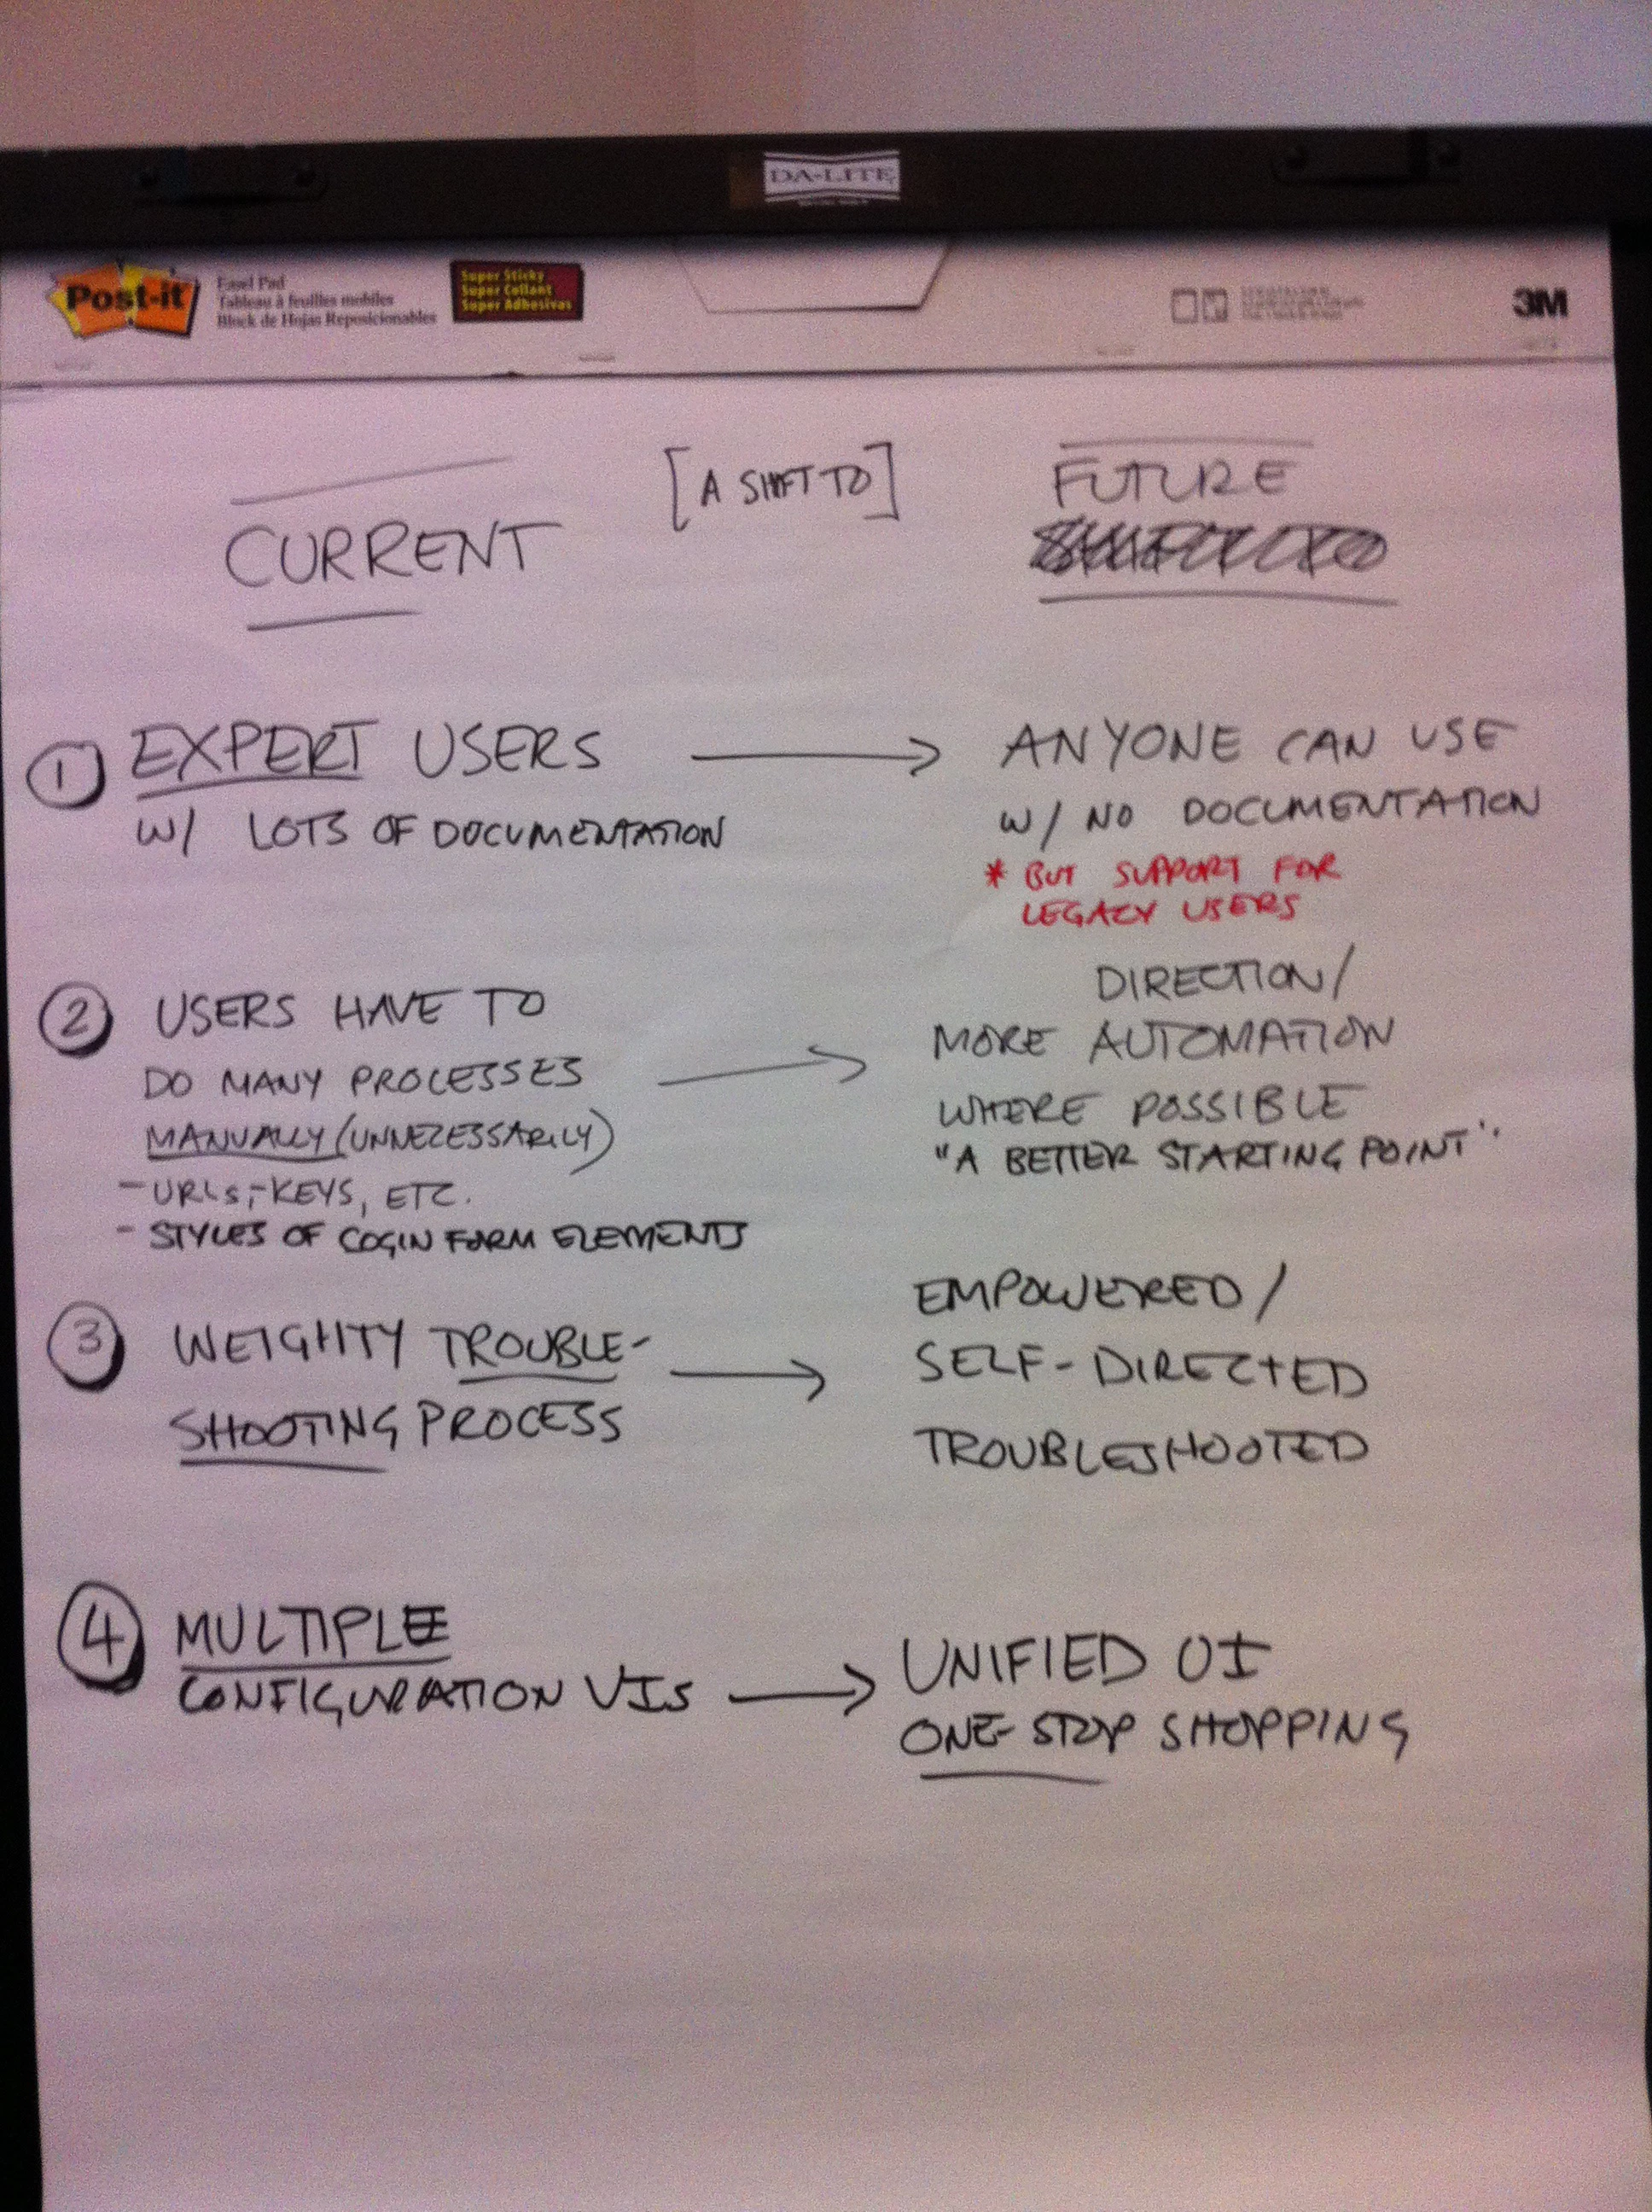 DA-LITE
Post-it
Easel Pad
Tableau à feuilles mobiles
Block de Hojas Reposicionables
Super Sticky
Super Collant
Super Adhesivas
3M
CURRENT
[A SHIFT TO]
FUTURE
① EXPERT USERS
W/ LOTS OF DOCUMENTATION
ANYONE CAN USE
W/ NO DOCUMENTATION
* BUT SUPPORT FOR
LEGACY USERS
② USERS HAVE TO
DO MANY PROCESSES
MANUALLY (UNNECESSARILY)
- URLs, - KEYS, ETC.
- STYLES OF LOGIN FORM ELEMENTS
DIRECTION/
MORE AUTOMATION
WHERE POSSIBLE
"A BETTER STARTING POINT"
③ WEIGHTY TROUBLE-
SHOOTING PROCESS
EMPOWERED/
SELF-DIRECTED
TROUBLESHOOTED
④ MULTIPLE
CONFIGURATION UIs
UNIFIED UI
ONE-STOP SHOPPING